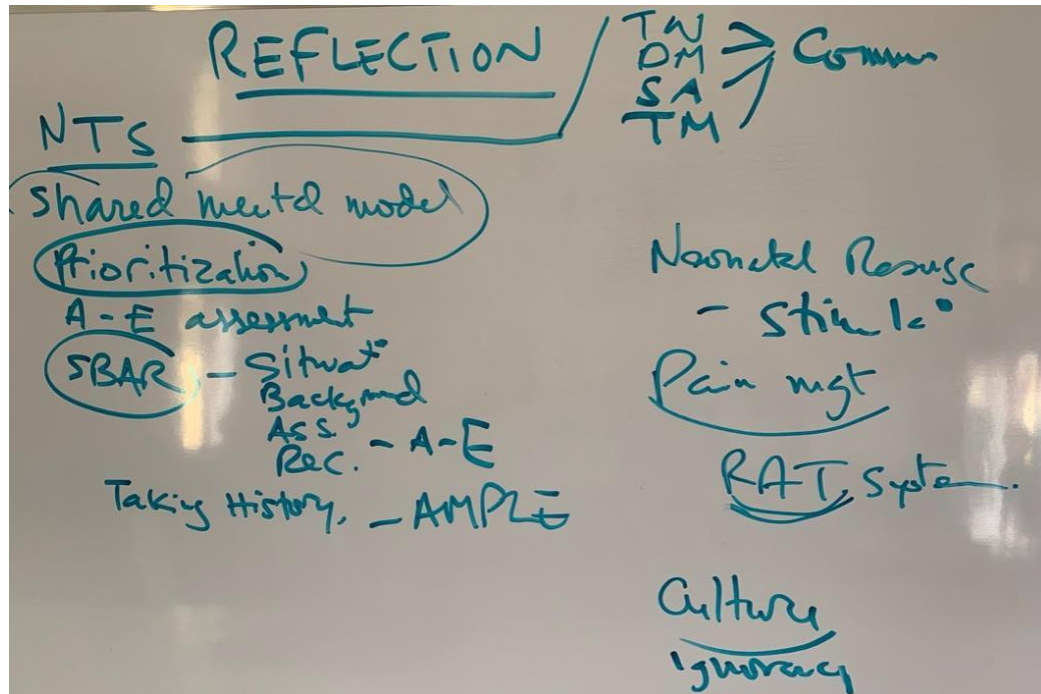 REFLECTION
TW
DM
SA
TM
Commun
NTS
Shared mental model
Prioritization
A-E assessment
SBAR - Situat°
Background
Ass.
Rec. - A-E
Taking History, - AMPLE
Neonatal Resusc
- Stimul°
Pain mgt
RAT System.
Culture